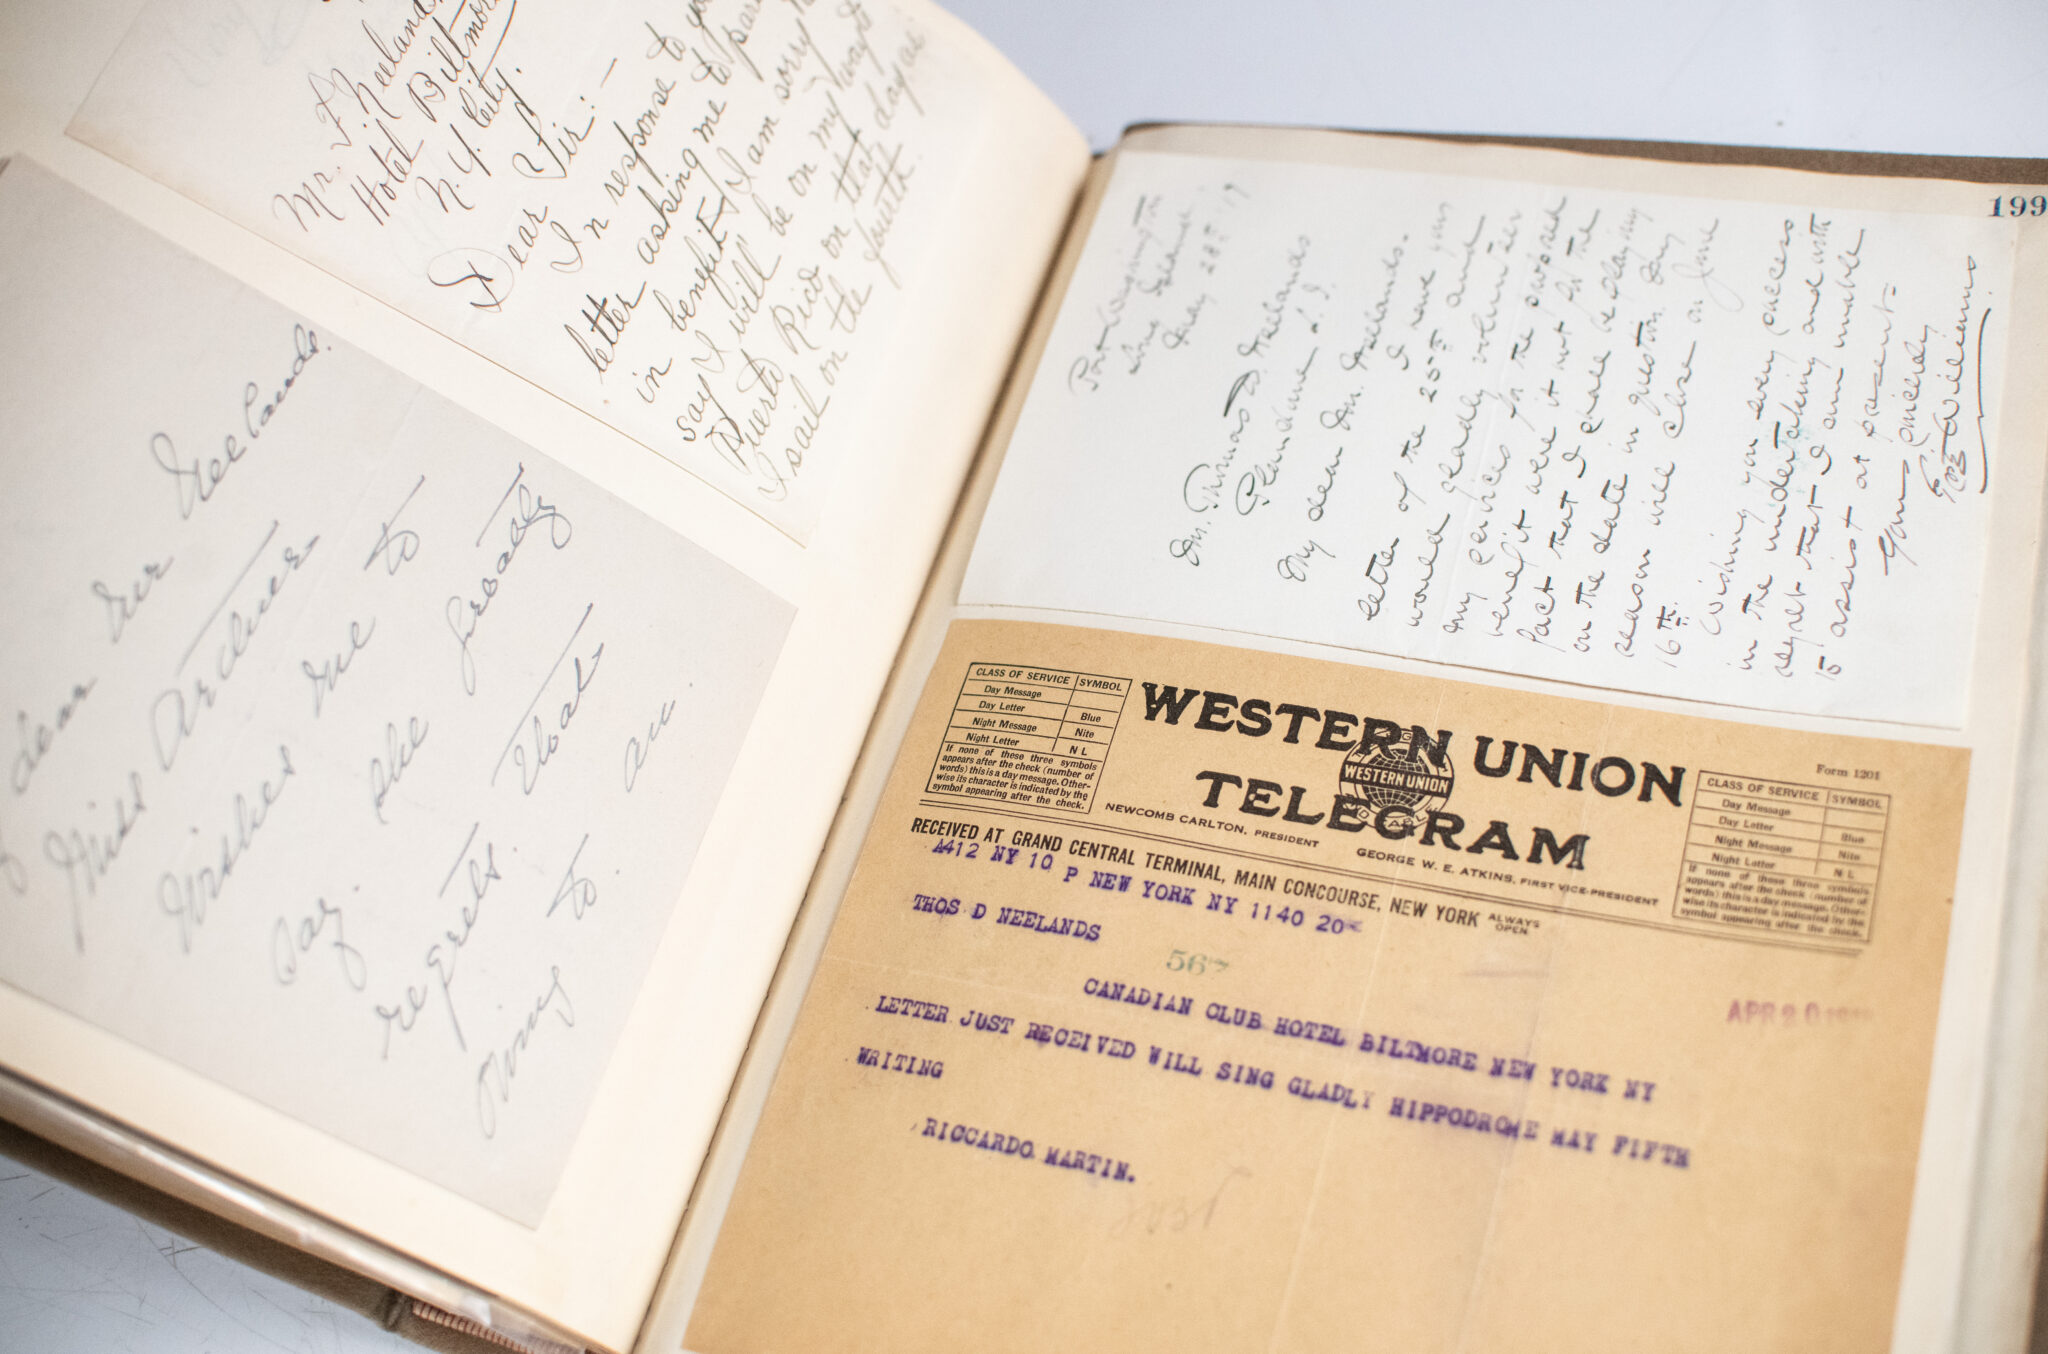 Mr. T. Neeland
Hotel Biltmore
N. Y. City.
Dear Sir:—
In response to
letter asking me to
in benefit, I am sorry to
say I will be on my way to
Puerto Rico on that day, as
I sail on the fourth.
dear Mr Neelands.
Miss Archer
Wishes me to
say. she greatly
regrets. that
owing to. an
199
Port Washington
Long Island
May 28th 19
Mr. Thomas D. Neelands
Plandome L. I.
My dear Mr. Neelands.
I have your
letter of the 25th and
would gladly volunteer
my services for the proposed
benefit were it not for the
fact that I shall be playing
on the date in question. My
season will close on June
16th.
Wishing you every success
in the undertaking and with
regret that I am unable
to assist at present-
Yours sincerely
Williams
CLASS OF SERVICE SYMBOL
Day Message
Day Letter Blue
Night Message Nite
Night Letter N L
If none of these three symbols
appears after the check (number of
words) this is a day message. Other-
wise its character is indicated by the
symbol appearing after the check.
WESTERN UNION
TELEGRAM
WESTERN UNION
NEWCOMB CARLTON, PRESIDENT
GEORGE W. E. ATKINS, FIRST VICE-PRESIDENT
Form 1201
CLASS OF SERVICE SYMBOL
Day Message
Day Letter Blue
Night Message Nite
Night Letter N L
If none of these three symbols
appears after the check (number of
words) this is a day message. Other-
wise its character is indicated by the
symbol appearing after the check.
RECEIVED AT GRAND CENTRAL TERMINAL, MAIN CONCOURSE, NEW YORK ALWAYS OPEN
A412 NY 10 P NEW YORK NY 1140 20
THOS D NEELANDS
567
APR 20
CANADIAN CLUB HOTEL BILTMORE NEW YORK NY
LETTER JUST RECEIVED WILL SING GLADLY HIPPODROME MAY FIFTH
WRITING
RICCARDO MARTIN.